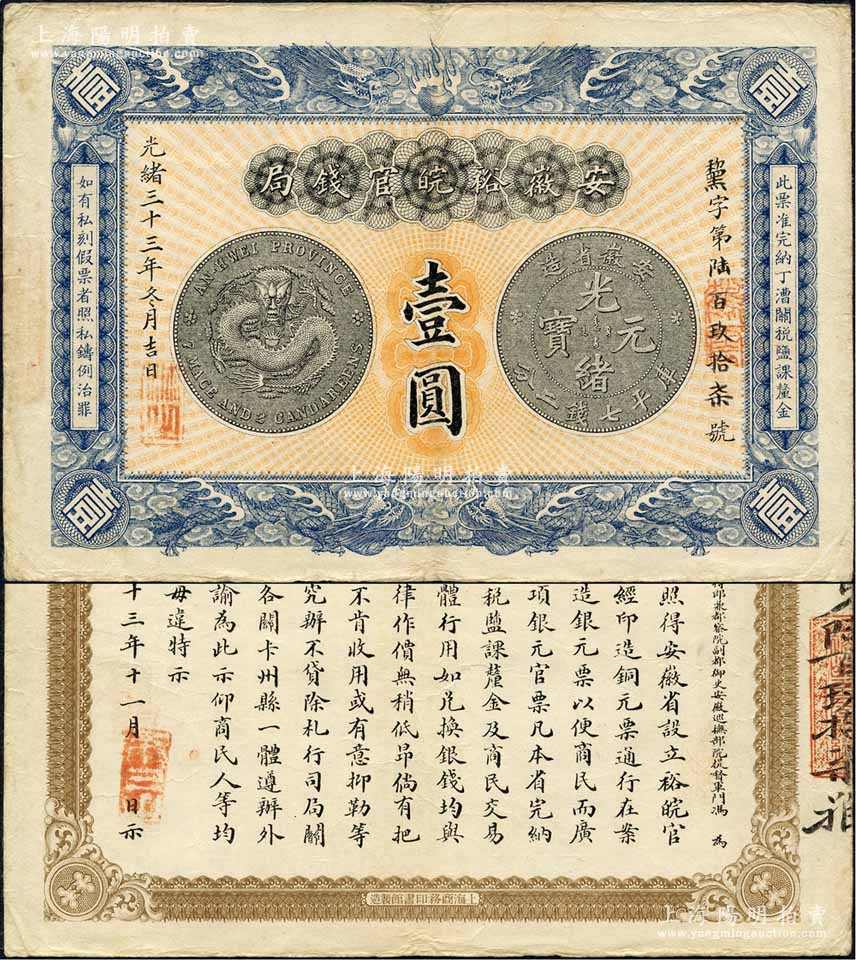 上海陽明拍賣
www.yangmingauction.com
壹
壹
此票准完納丁漕關稅鹽課釐金
黟字第陸百玖拾柒號
安徽裕皖官錢局
安徽省造
光緒元寶
庫平七錢二分
壹圓
AN-HWEI PROVINCE
7 MACE AND 2 CANDAREENS
光緒三十三年冬月吉日
如有私刻假票者照私鑄例治罪
壹
壹
上海陽明拍賣
www.yangmingauction.com
都察院副都御史安徽巡撫部院提督軍門馮 為
照得安徽省設立裕皖官
經印造銅元票通行在案
造銀元票以便商民而廣
項銀元官票凡本省完納
稅鹽課釐金及商民交易
體行用如兌換銀錢均與
律作價無稍低昂倘有把
不肯收用或有意抑勒等
究辦不貸除札行司局關
各關卡州縣一體遵辦外
諭為此示仰商民人等均
毋違特示
十三年十一月 日示
上海商務印書館製造
上海陽明拍賣
www.yangmingauction.com